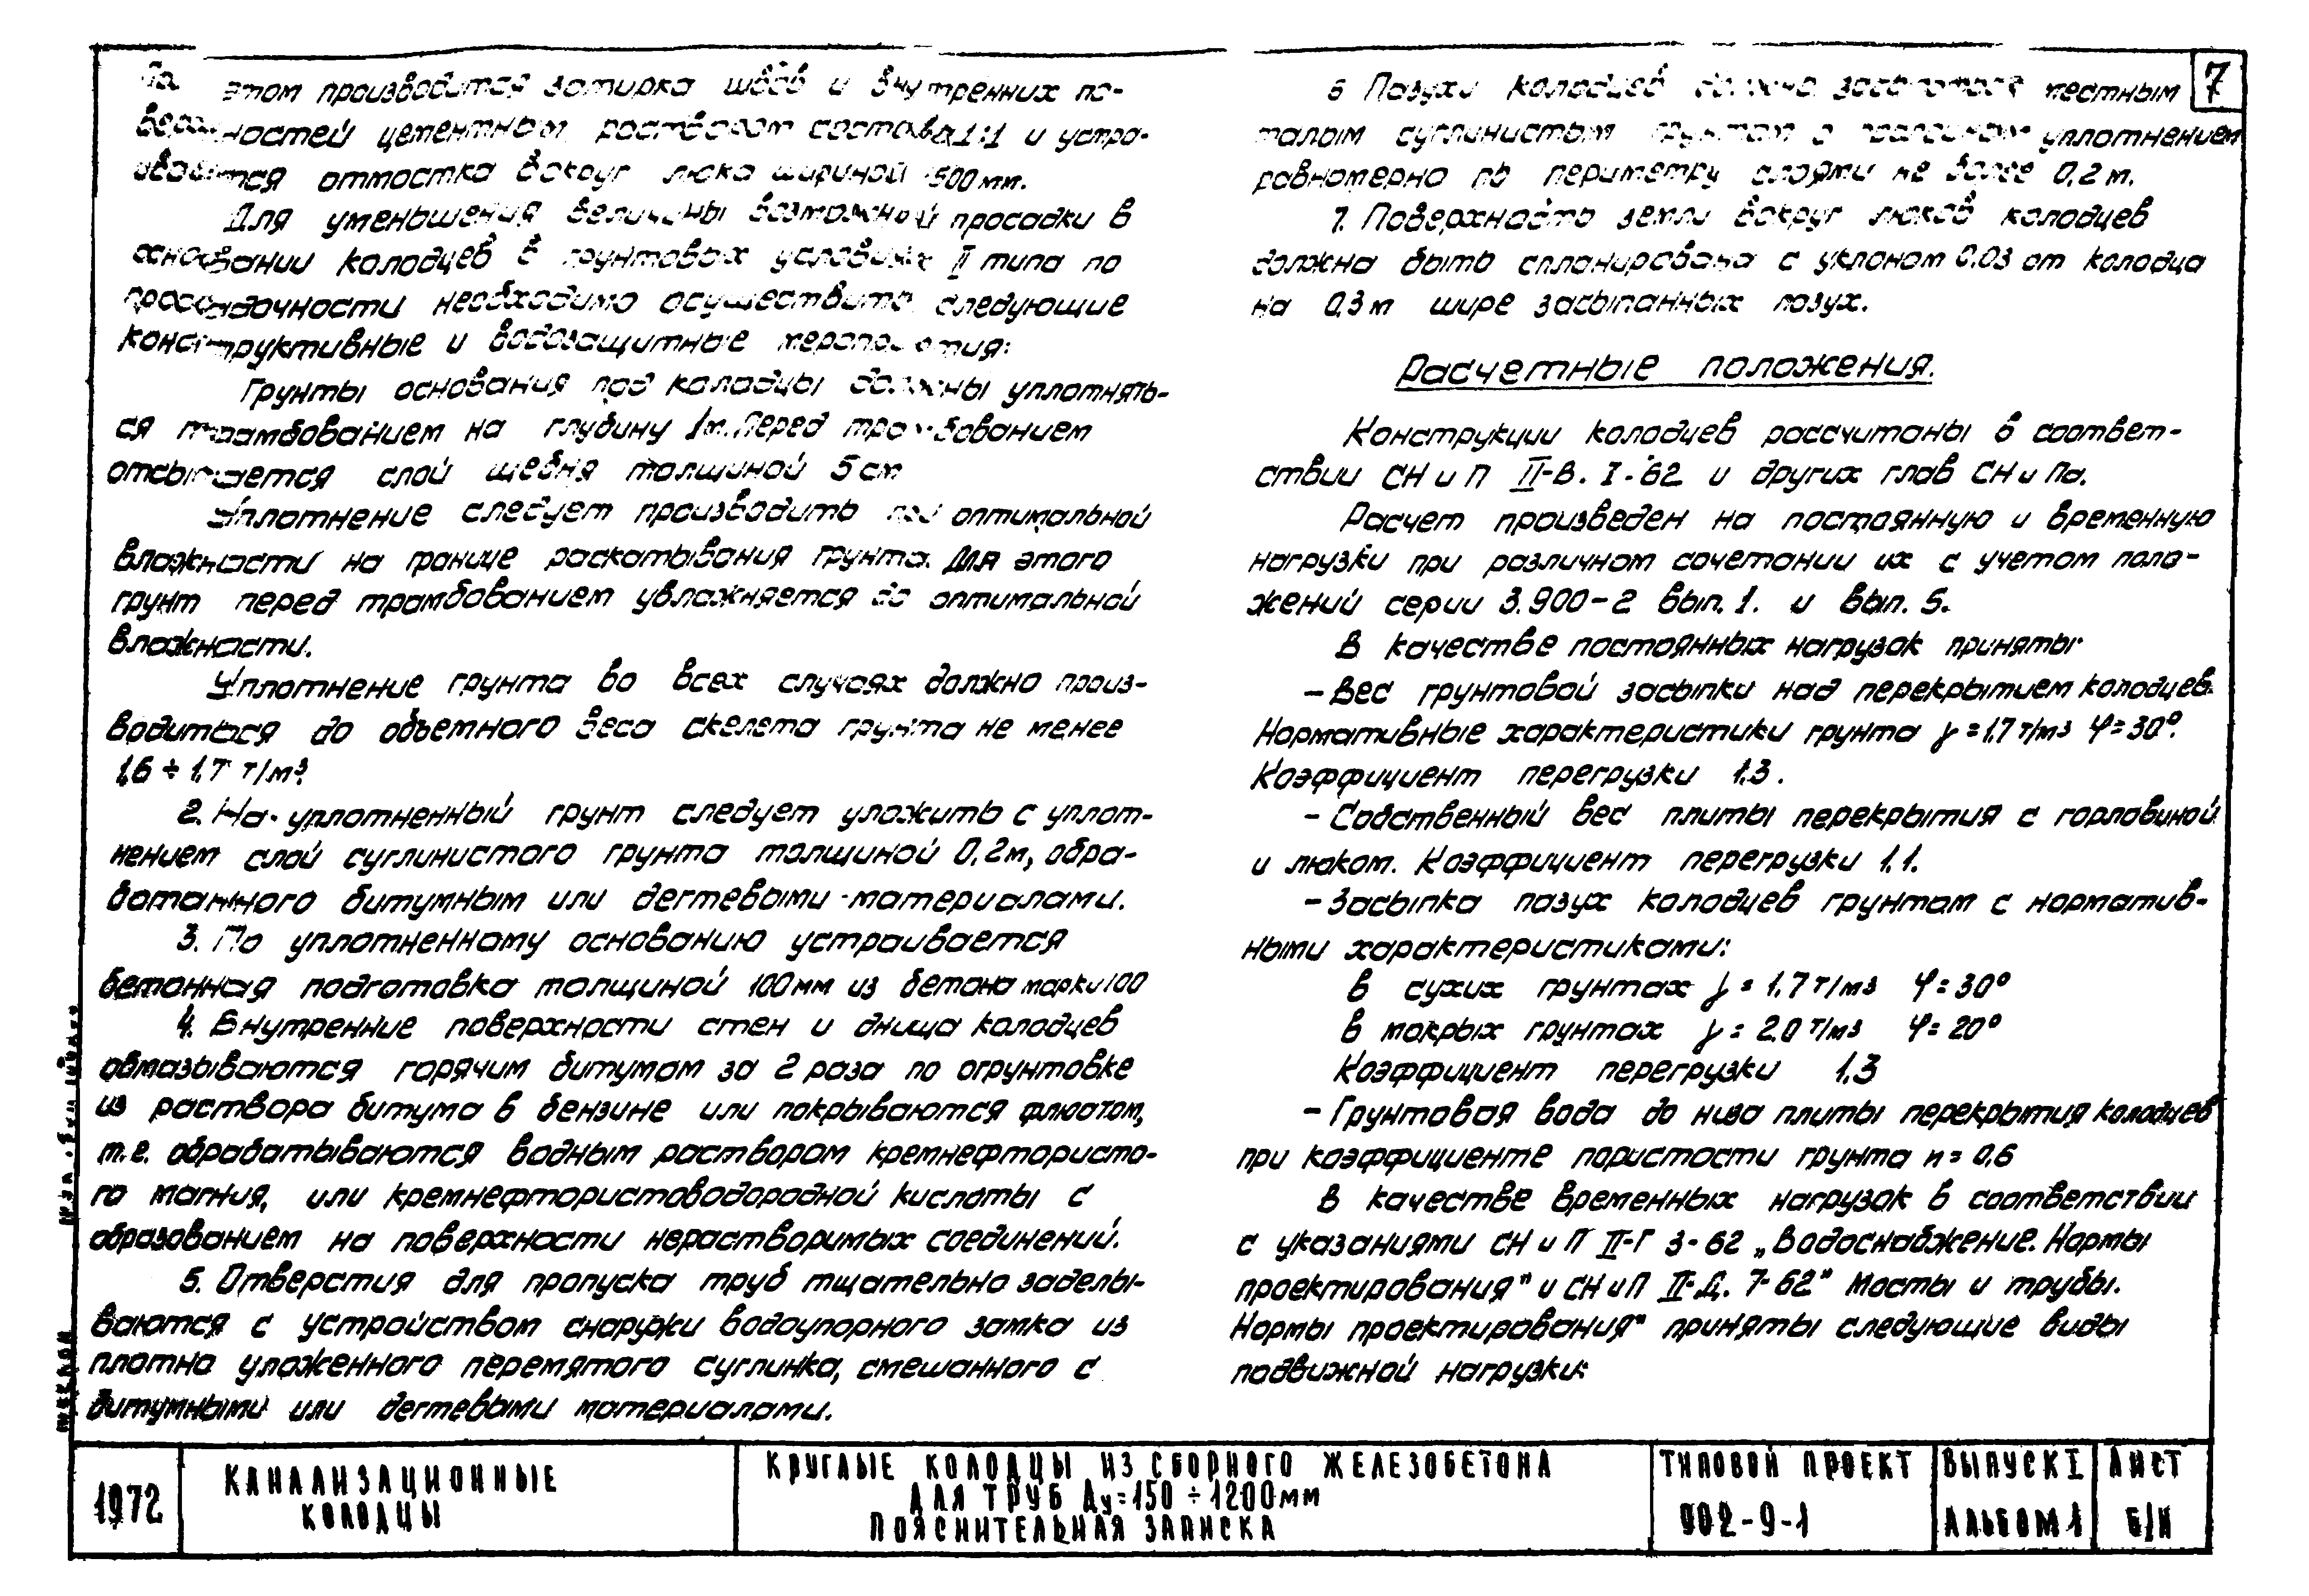 7
этом производится затирка швов и внутренних по-
верхностей цементным раствором состава 1:1 и устра-
ивается отмостка вокруг люка шириной 500 мм.
Для уменьшения величины возможной просадки в
основании колодцев в грунтовых условиях II типа по
просадочности необходимо осуществить следующие
конструктивные и водозащитные мероприятия:
Грунты основания под колодцы должны уплотнять-
ся трамбованием на глубину 1м. Перед трамбованием
отсыпается слой щебня толщиной 5 см
Уплотнение следует производить при оптимальной
влажности на границе раскатывания грунта. Для этого
грунт перед трамбованием увлажняется до оптимальной
влажности.
Уплотнение грунта во всех случаях должно произ-
водиться до объемного веса скелета грунта не менее
1,6 ÷ 1,7 т/м³.
2. На уплотненный грунт следует уложить с уплот-
нением слой суглинистого грунта толщиной 0,2м, обра-
ботанного битумным или дегтевыми материалами.
3. По уплотненному основанию устраивается
бетонная подготовка толщиной 100 мм из бетона марки 100
4. Внутренние поверхности стен и днища колодцев
обмазываются горячим битумом за 2 раза по огрунтовке
из раствора битума в бензине или покрываются флюатом,
т.е. обрабатываются водным раствором кремнефтористо-
го магния, или кремнефтористоводородной кислоты с
образованием на поверхности нерастворимых соединений.
5. Отверстия для пропуска труб тщательно заделы-
ваются с устройством снаружи водоупорного замка из
плотно уложенного перемятого суглинка, смешанного с
битумными или дегтевыми материалами.
6 Пазухи колодцев должно засыпаться местным
талым суглинистым грунтом с уплотнением
равномерно по периметру слоями не более 0,2 м.
7. Поверхность земли вокруг люков колодцев
должна быть спланирована с уклоном 0.03 от колодца
на 0,3 м шире засыпанных пазух.
Расчетные положения.
Конструкции колодцев рассчитаны в соответ-
ствии СН и П II-В. I-62 и других глав СН и Па.
Расчет произведен на постоянную и временную
нагрузки при различном сочетании их с учетом поло-
жений серии 3.900-2 вып. 1. и вып. 5.
В качестве постоянных нагрузок приняты
- Вес грунтовой засыпки над перекрытием колодцев.
Нормативные характеристики грунта γ = 1,7 т/м3 φ = 30°.
Коэффициент перегрузки 1,3.
- Собственный вес плиты перекрытия с горловиной
и люком. Коэффициент перегрузки 1.1.
- Засыпка пазух колодцев грунтом с норматив-
ными характеристиками:
в сухих грунтах γ = 1,7 т/м3 φ = 30°
в мокрых грунтах γ = 2.0 т/м3 φ = 20°
Коэффициент перегрузки 1,3
- Грунтовая вода до низа плиты перекрытия колодцев
при коэффициенте пористости грунта n = 0,6
В качестве временных нагрузок в соответствии
с указаниями СН и П II-Г 3-62 „Водоснабжение. Нормы
проектирования" и СН и П II-Д. 7-62" Мосты и трубы.
Нормы проектирования" приняты следующие виды
подвижной нагрузки:
1972
КАНАЛИЗАЦИОННЫЕ
КОЛОДЦЫ
КРУГЛЫЕ КОЛОДЦЫ ИЗ СБОРНОГО ЖЕЛЕЗОБЕТОНА
ДЛЯ ТРУБ Ду=150 ÷ 1200мм
ПОЯСНИТЕЛЬНАЯ ЗАПИСКА
ТИПОВОЙ ПРОЕКТ
902-9-1
ВЫПУСК I
АЛЬБОМ 1
ЛИСТ
Б/Н